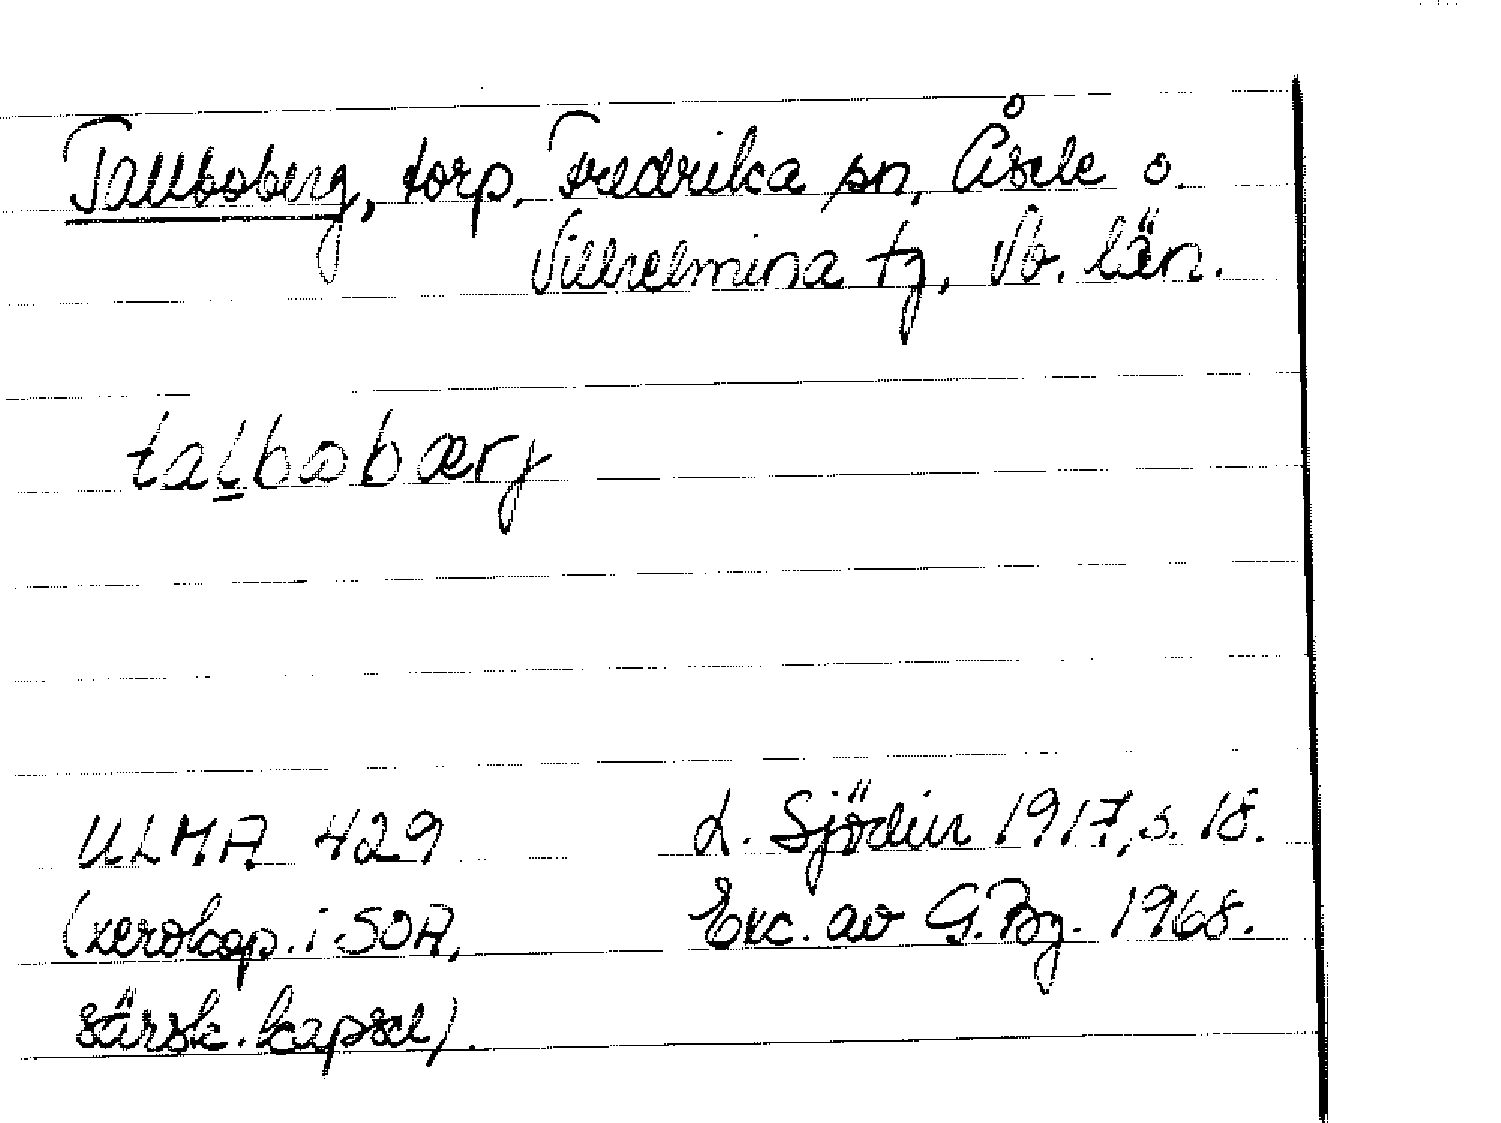 Tallboberg, torp, Fredrika sn, Åsele o.
Vilhelmina tg, Vb. län.
talbobærj
ULMA 429
L. Sjödin 1917, s. 18.
(xerokop. i SOA,
Exc. av G. Bg. 1968.
särsk. kapsel).